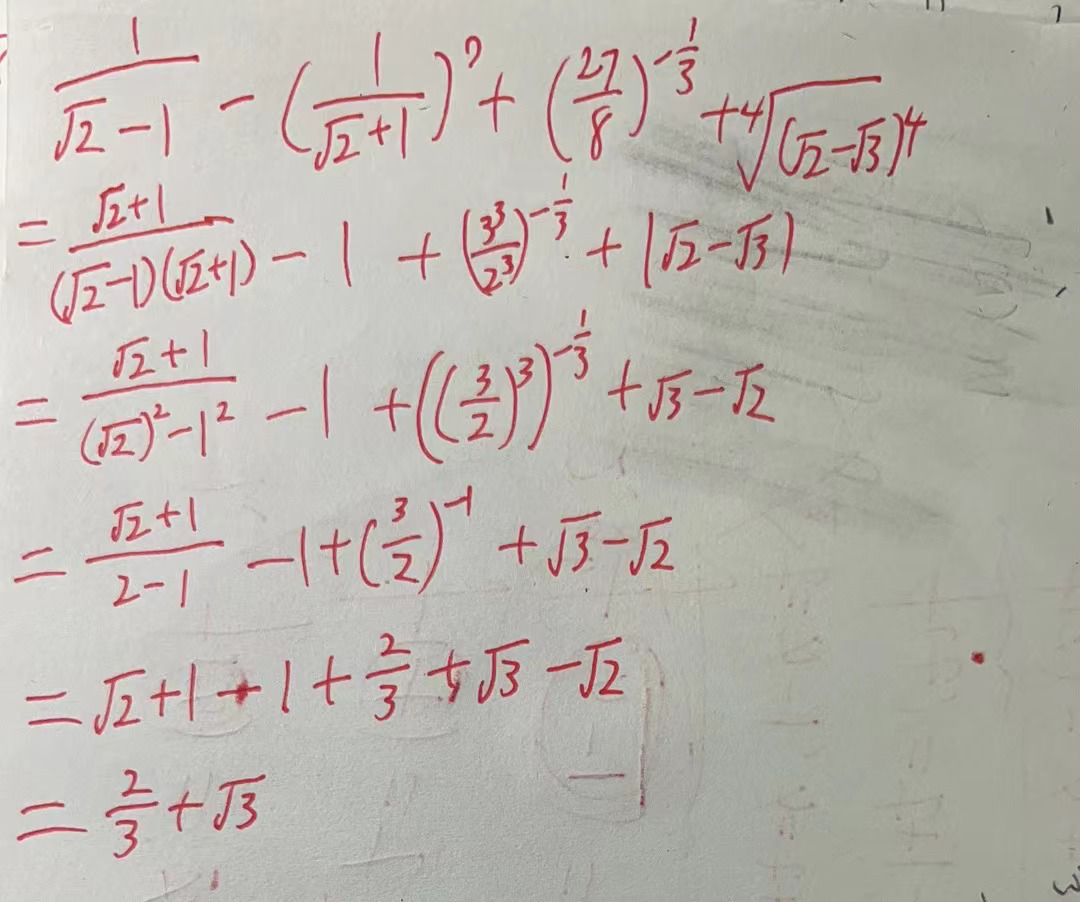 1/(√2-1) - (1/(√2+1))⁰ + (27/8)^(-1/3) + ⁴√((√2-√3)⁴)
= (√2+1)/((√2-1)(√2+1)) - 1 + (3³/2³)^(-1/3) + |√2-√3|
= (√2+1)/((√2)²-1²) - 1 + ((3/2)³)^(-1/3) + √3-√2
= (√2+1)/(2-1) - 1 + (3/2)^(-1) + √3-√2
= √2+1-1+2/3+√3-√2
= 2/3+√3